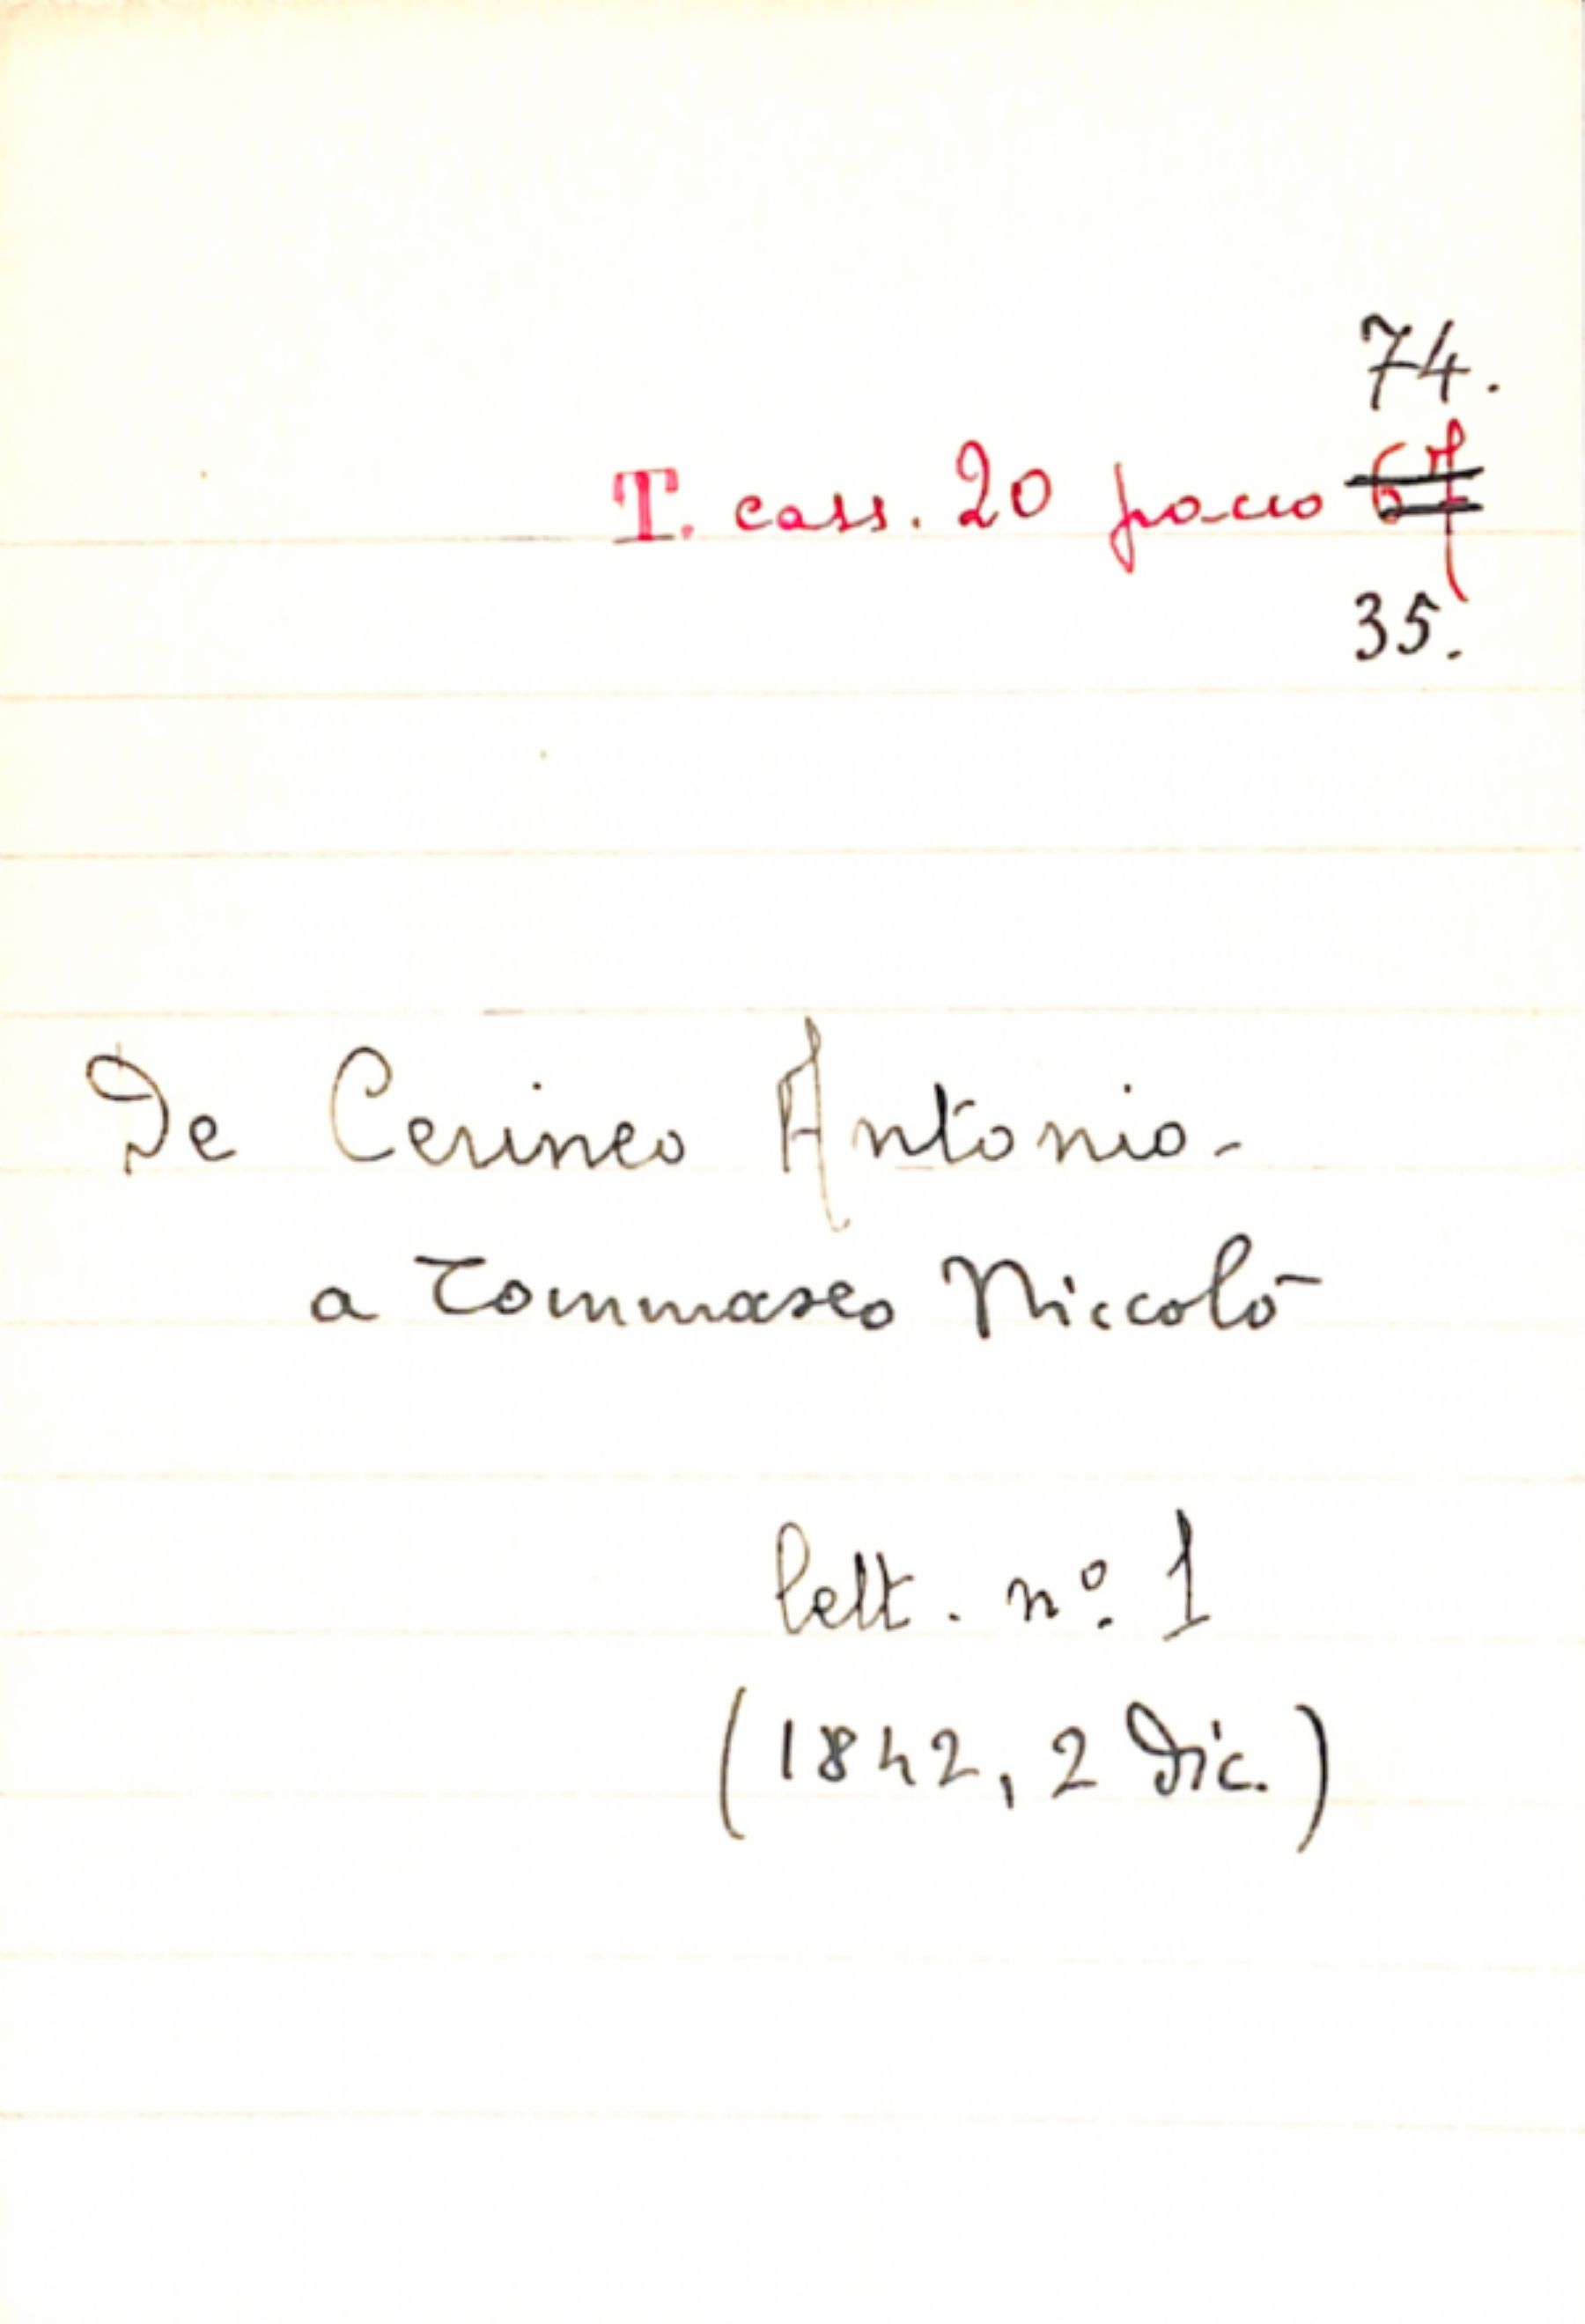 74.
T. cass. 20 pacco 67
35.
De Cerineo Antonio-
a Tommaseo Niccolò
lett. nº. 1
(1842, 2 Dic.)